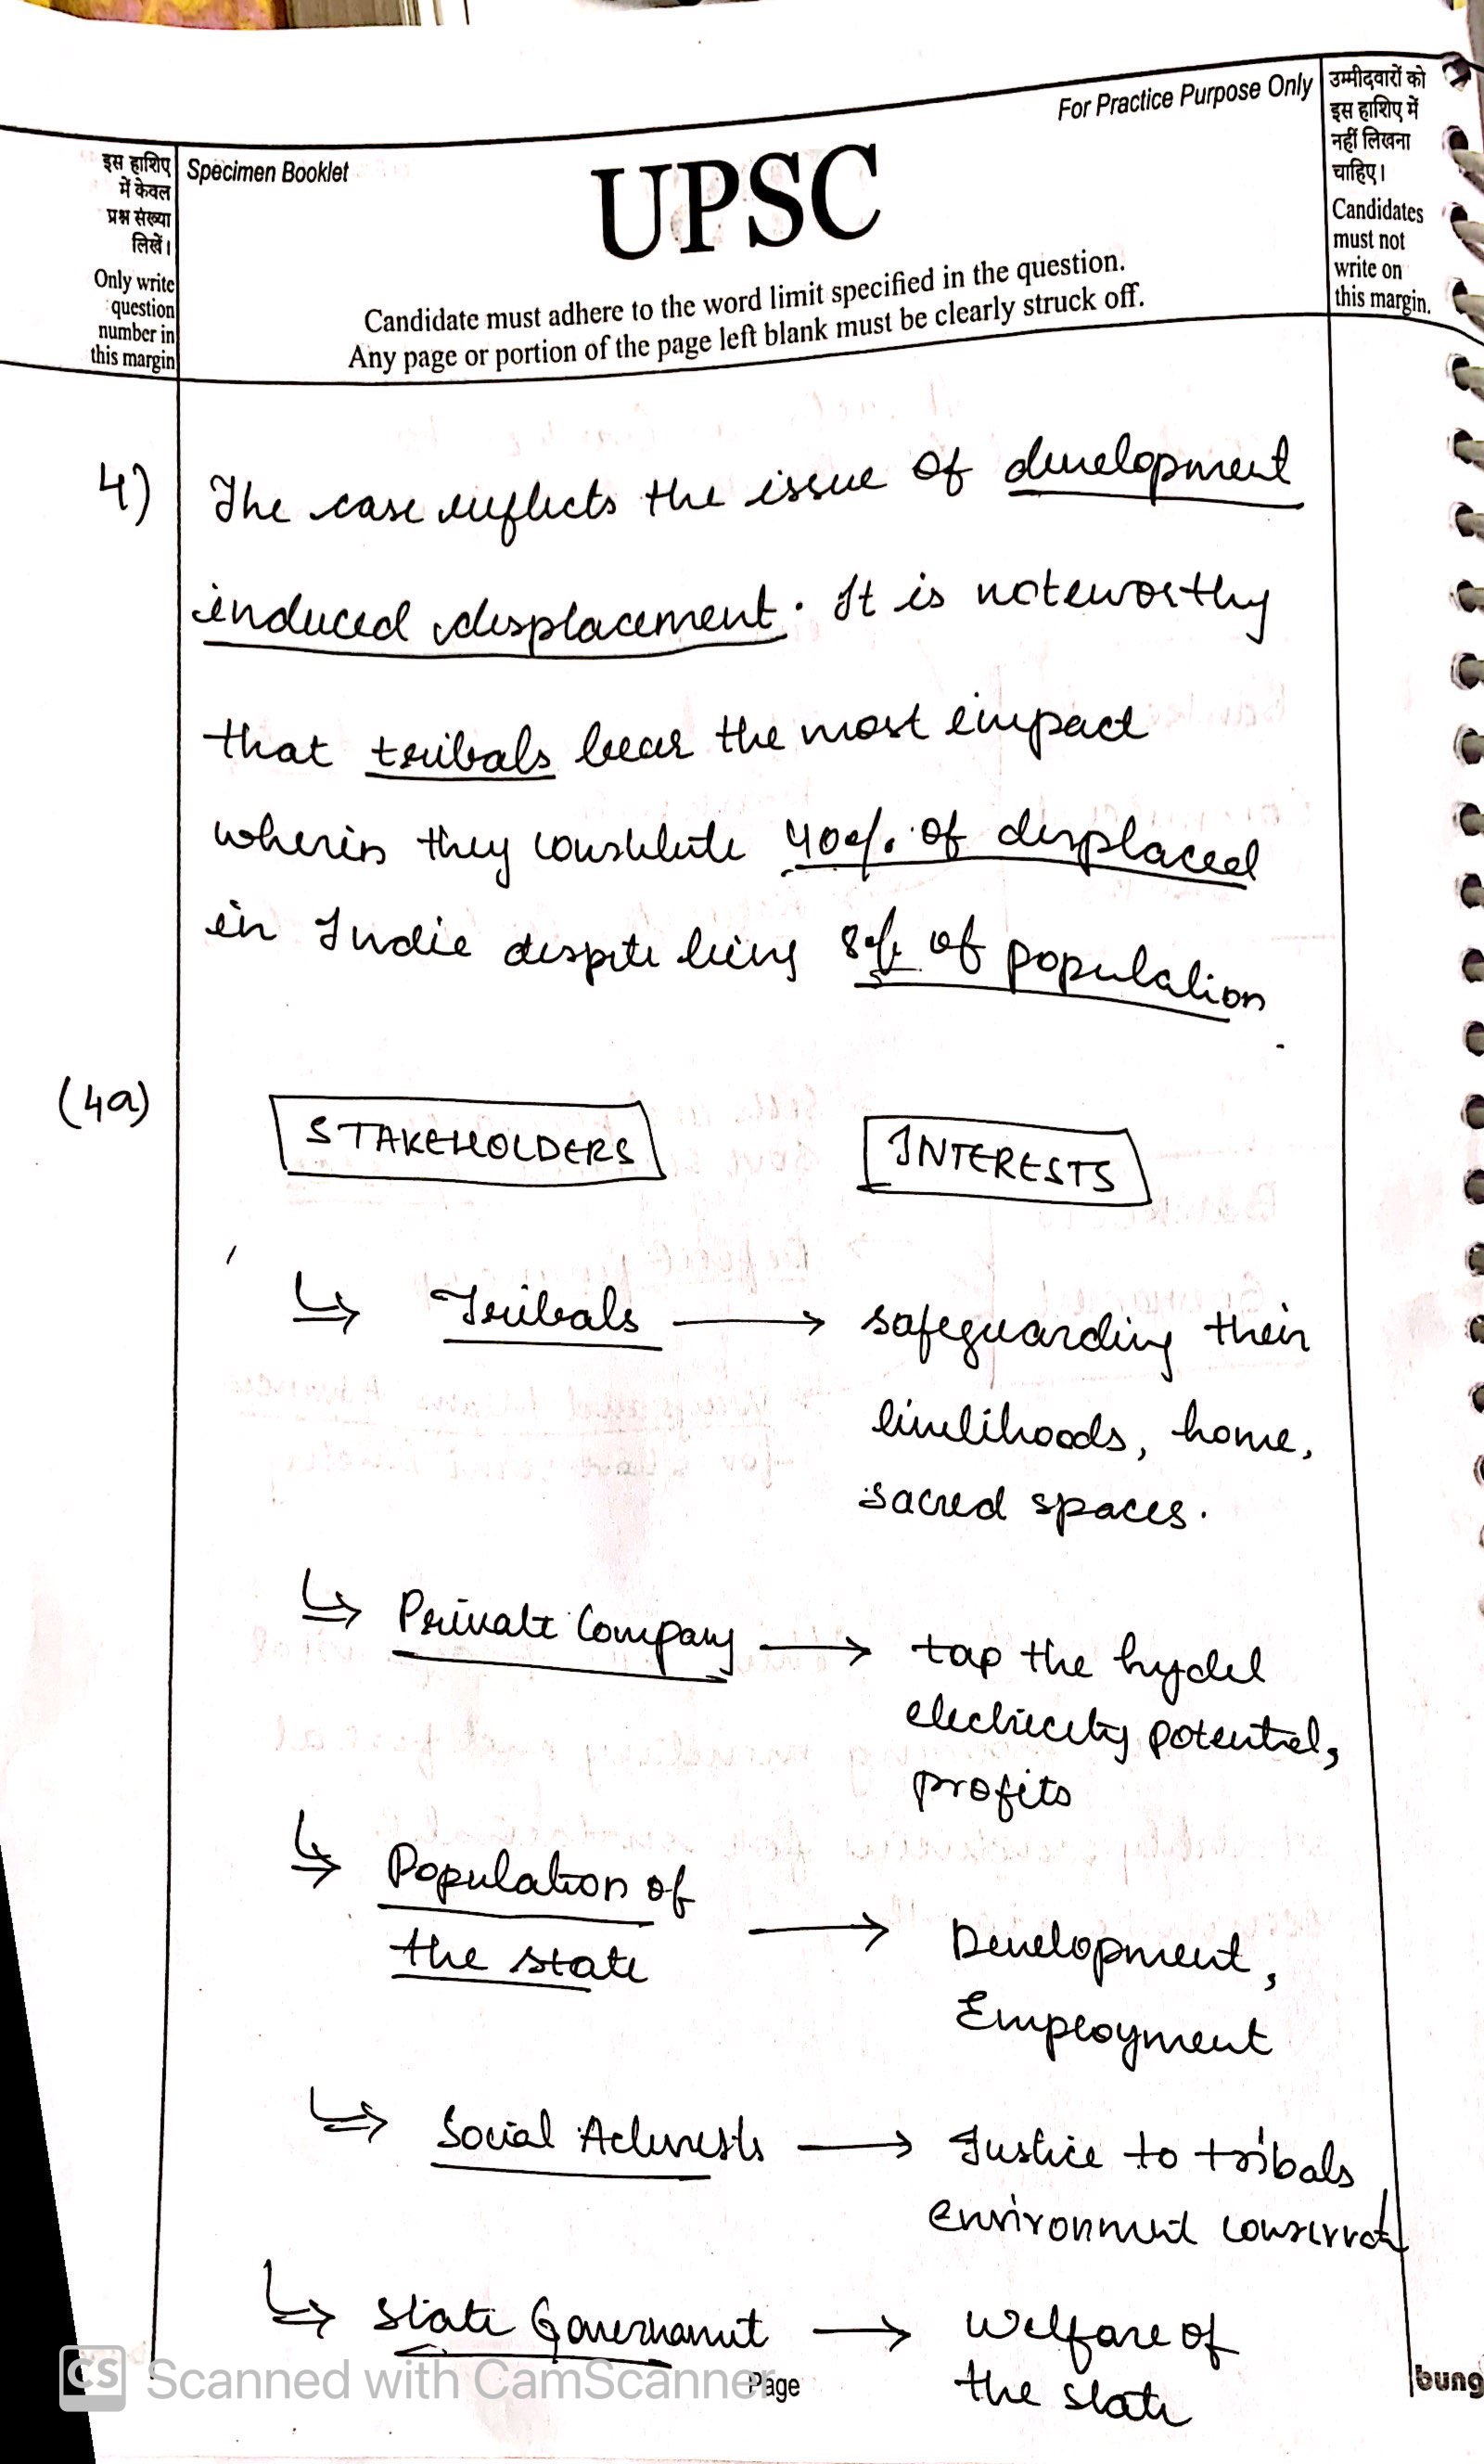 For Practice Purpose Only
उम्मीदवारों को
इस हाशिए में
नहीं लिखना
चाहिए।
Candidates
must not
write on
this margin.
इस हाशिए
में केवल
प्रश्न संख्या
लिखें।
Only write
question
number in
this margin
Specimen Booklet
UPSC
Candidate must adhere to the word limit specified in the question.
Any page or portion of the page left blank must be clearly struck off.
4) The case reflects the issue of development
induced displacement. It is noteworthy
that tribals bear the most impact
wherein they constitute 40% of displaced
in India despite being 8% of population.
(4a) STAKEHOLDERS INTERESTS
↳ Tribals → safeguarding their
livelihoods, home,
sacred spaces.
↳ Private Company → tap the hydel
electricity potential,
profits
↳ Population of
the state → Development,
Employment
↳ Social Activists → Justice to tribals
environment conservatn
↳ State Government → Welfare of
the state
CS Scanned with CamScanner
Page
bung